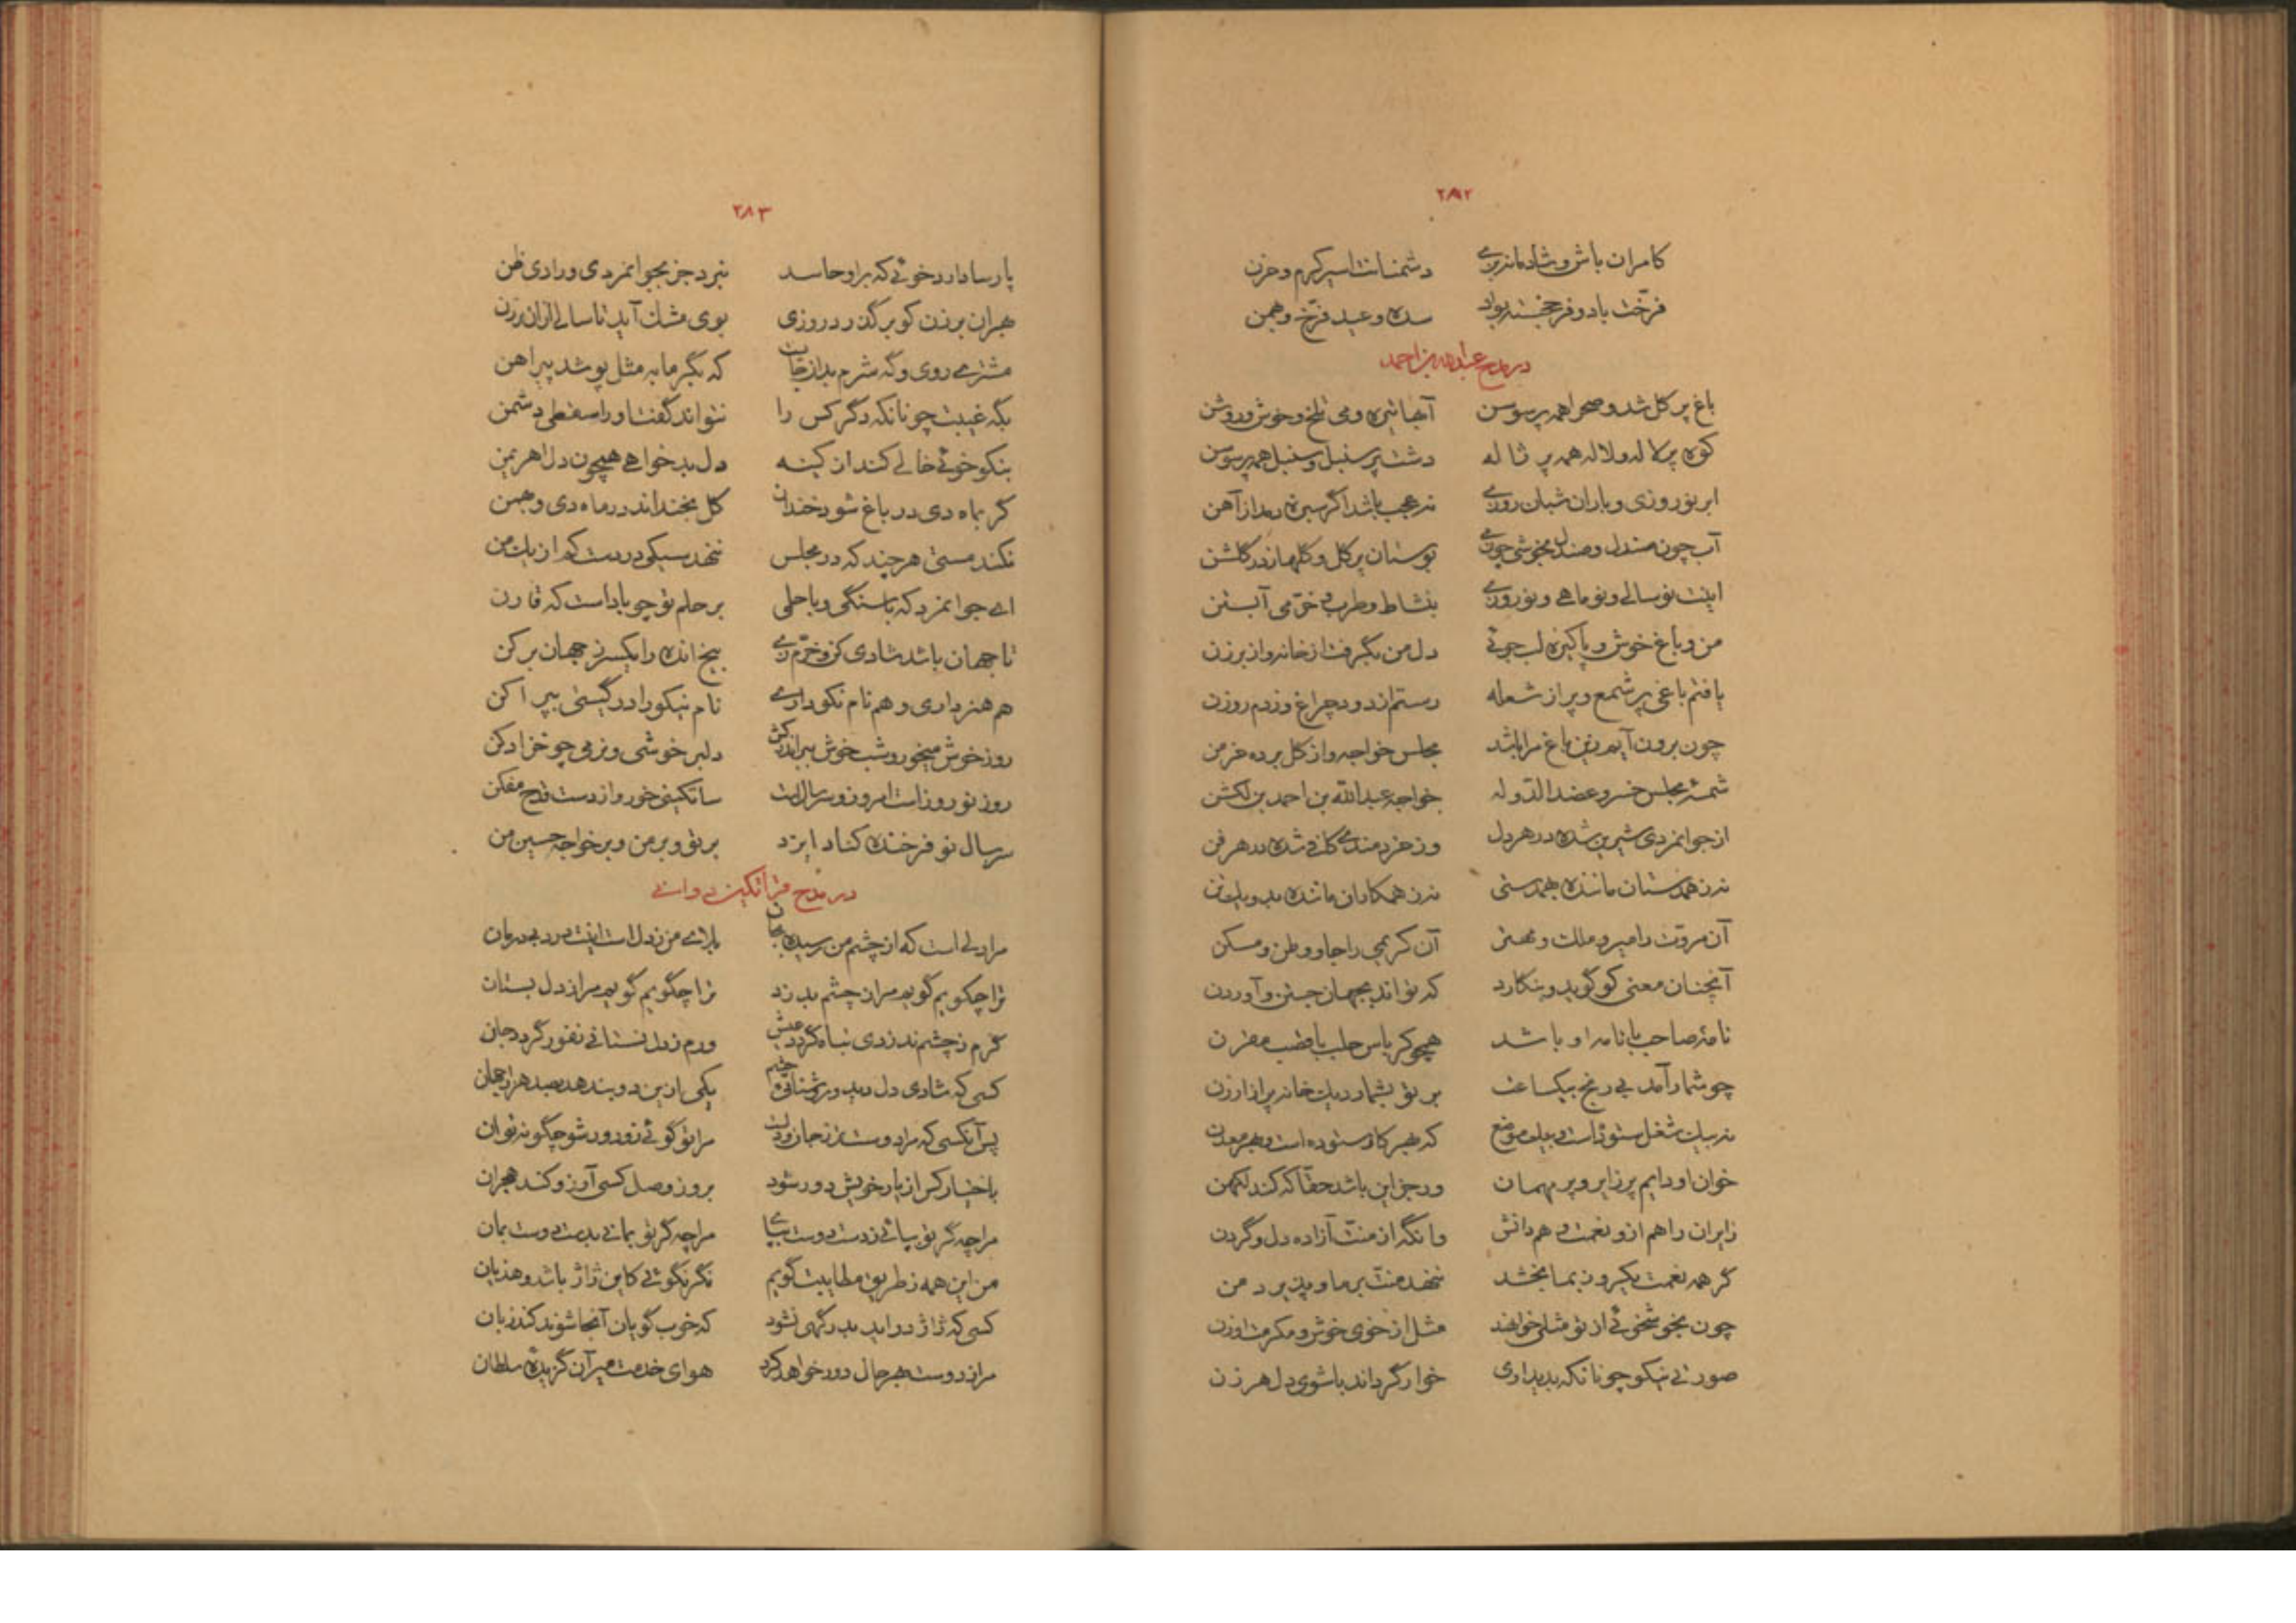 ۲۸۲
کامران باش و شادمانه بزی دشمنانت اسیر گرم و حزن
فرخت باد و فرخجسته بواد سده و عید فرخ و بهمن
در مدح عبدالله بن احمد
باغ پر گل شد و صحرا همه پر سوسن آبها تیره و می تلخ و خوش و روشن
کوه پر لاله و لاله همه پر ژاله دشت پر سنبل و سنبل همه پر سوسن
ابر نوروزی و باران شبان روزی نه عجب باشد اگر سبزه دمد از آهن
آب چون صندل و صندل بخوشی چون می بوستان پر گل و گلها ز در گلشن
اینت نو سالی و نو ماهی و نو روزی بنشاط و طرب و خرمی آبستن
من و باغ خوش و پاکیزه لب جوئی دل من بگرفت از خانه و از برزن
یافتم باغی پر شمع و پر از شعله رستم از دود چراغ و ز دم روزن
چون برون آیم ازین باغ مرا باشد مجلس خواجه و از گل برده خرمن
شمسهٔ مجلس خسرو عضد الدوله خواجه عبدالله بن احمد بن لکشن
از جوانمردی شیرین شده در هر دل وز خردمندی کافی شده در هر فن
نه ز همدستان مانندهٔ همدستی نه ز همکاران مانده بدو یکتن
آن مروت را میر و ملک و مهتر آن کریمی را جا و وطن و مسکن
آنچنان معنی کو گوید و بنگارد که تواند بجهان جستن و آوردن
نامهٔ صاحب با نامه او باشد همچو کرباس حلب با قصب مقرن
چو شمار آمد بی رنج بیکساعت بر تو بشمارد یک خانه پر از ارزن
نه بیک شغل ستوده است و بیک موضع که بهر کار ستوده است و بهر معدن
خوان او دایم پر زایر و پر مهمان ور جز این باشد حقا که کند لکهن
زایران را هم ازو نعمت و هم دانش وانگه از منت آزاده دل و گردن
گر همه نعمت یکروز بما بخشد ننهد منت بر ما و پذیرد من
چون بخوشخوئی از تو مثلی خواهند مثل از خوی خوش و مکرمت او زن
صورتی نیکو چونانکه بدیداری خوار گرداند با شوی دل هر زن
۲۸۳
پارسا دارد خوئی که بر او حاسد نبرد جز بجوانمردی و رادی ظن
هر ان برزن کو بر گذرد روزی بوی مشک آید تا سالی از ان برزن
مشتری روی و گه شرم بدان جایست که بگرمابه مثل پوشد پیراهن
بگه غیبت چونانکه دگر کس را نتواند گفت او را سقطی دشمن
بنکو خوئی خالی کند از کینه دل بدخواهی همچون دل اهریمن
گر بماه دی در باغ شود خندان گل بخنداند در ماه دی و بهمن
نکند مستی هر چند که در مجلس ننهد سیکی در دست کم از یک من
ای جوانمرد که با سنگی و با حلمی بر حلم تو چو باد است که قارن
تا جهان باشد شادی کن و خرم زی بیخ انده را یکسر ز جهان بر کن
هم هنر داری و هم نام نکو داری نام نیکو را در گیتی بپراکن
روز خوش میخور و شب خوش ببر اندر کش دلبر خوشی و نرمی چو خز ادکن
روز نوروز است امروز و سر سالست ساتگینی خور و از دست قدح مفکن
سر سال نو فرخنده کناد ایزد بر تو و بر من و بر خواجه حسین من
در مدح قراتگین دوانی
مرا دلی است که از چشم من رسیده بجان بلای من ز دل است اینت درد بی درمان
ترا چگویم گویم مرا ز چشم بدزد ترا چگویم گویم مرا ز دل بستان
گرم ز چشم ندزدی تباه گردد عیش ورم ز دل نستانی نفور گردد جان
کسی که شادی دل دید و روشنائی چشم یکی ازین دو بندهد بصد هزار جهان
پس آنکسی که مرا دوستتر ز جان و دلست مرا تو گوئی زو دور شو چگونه توان
باختیار کس از یار خویش دور شود بروز وصل کسی آرزو کند هجران
مرا چه گر تو بیائی ز دست دوست بیای مرا چه گر تو بمانی بدست دوست بمان
من این همه ز طریق مطایبت گویم نگر نگوئی کاین ژاژ باشد و هذیان
کسی که ژاژ دراید بدرگهی نشود که خوب گویان آنجا شوند کند زبان
مرا ز دوست بهر حال دور خواهد کرد هوای خدمت میر آن گزیدهٔ سلطان